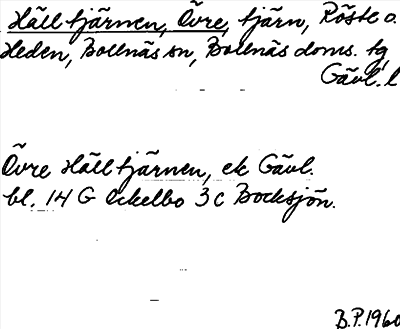 Hälltjärnen, Övre, tjärn, Röste o.
Heden, Bollnäs sn, Bollnäs doms. tg,
Gävl. l
Övre Hälltjärnen, ek Gävl.
bl. 14 G Ockelbo 3 c Bocksjön.
B.P. 1960